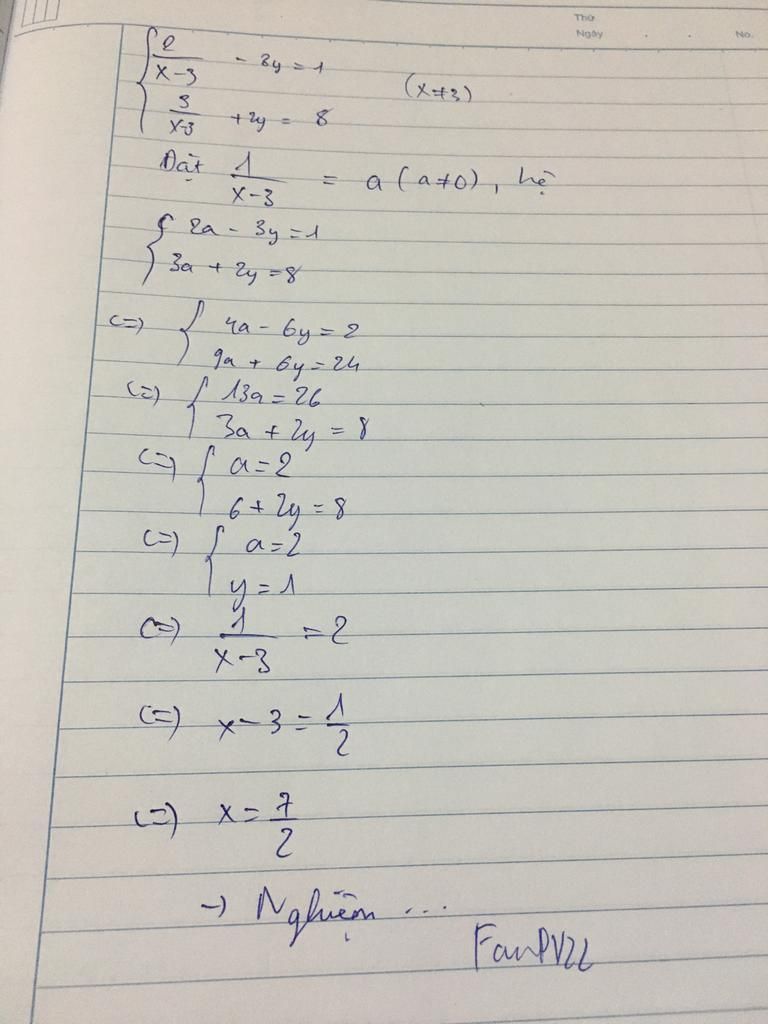 Thứ
Ngày . . No.
{ 2/(x-3) - 3y = 1
(x≠3)
{ 3/(x-3) + 2y = 8
Đặt 1/(x-3) = a (a≠0), hệ
{ 2a - 3y = 1
{ 3a + 2y = 8
(=) { 4a - 6y = 2
{ 9a + 6y = 24
(=) { 13a = 26
{ 3a + 2y = 8
(=) { a = 2
{ 6 + 2y = 8
(=) { a = 2
{ y = 1
(=) 1/(x-3) = 2
(=) x - 3 = 1/2
(=) x = 7/2
→ Nghiệm ...
FanPVZZ